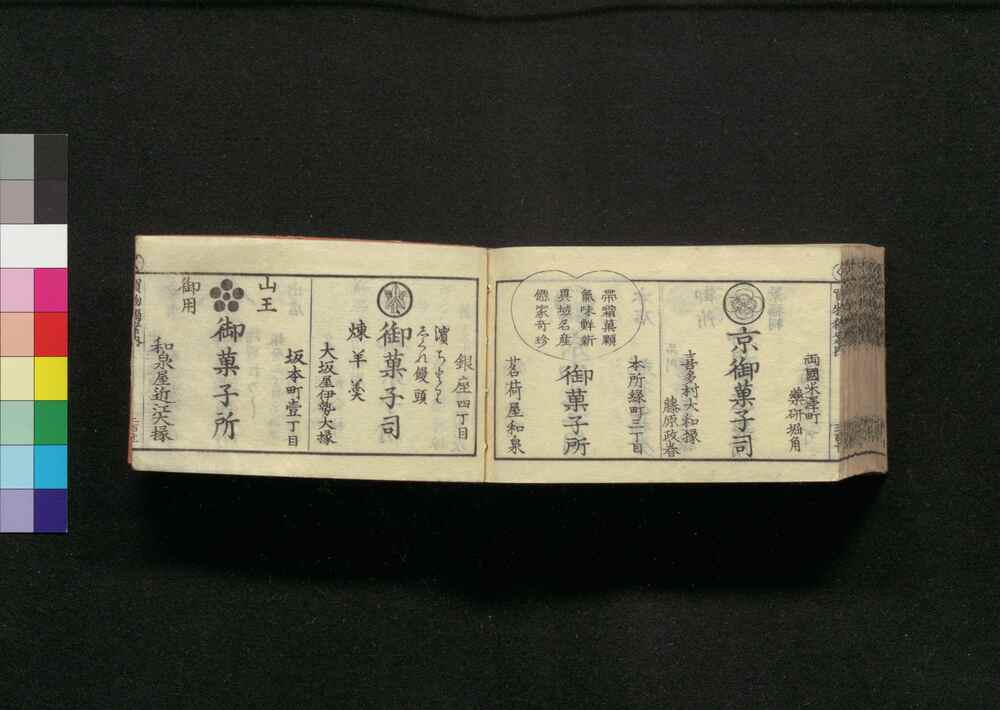 両國米澤町
藥研堀角
京御菓子司
喜多村大和掾
藤原政春
本所緑町三丁目
帶霜菓顆
氣味鮮新
異域名産
僊家奇珍
御菓子所
茗荷屋和泉
銀座四丁目
御菓子司
煉羊羹
大坂屋伊勢大掾
坂本町壹丁目
山王
御用
御菓子所
和泉屋近江大掾